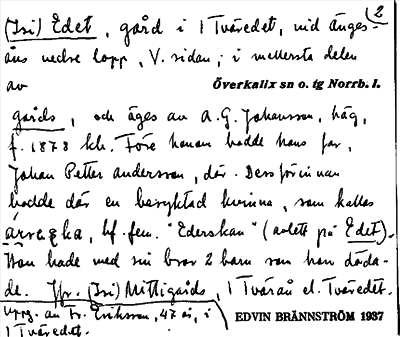 (Isi) Edet, gård i 1 Tväredet, vid änges- 2
åns nedre lopp, V. sidan; i mellersta delen
av Överkalix sn o. tg Norrb. l.
gårds, och äges av A. G. Johansson, häg,
f. 1878 kh. Före honom bodde hans far,
Johan Petter Andersson, där. Dessförinnan
bodde där en beryktad kvinna, som kallas
bf. fem. "Ederskan" (avlett på Edet).
Hon hade med sin bror 2 barn som hon döda-
de. Jfr. (Isi) Mittigårds, 1 Tvärån el. Tväredet.
Uppg. av Fr. Eriksson, 47 år, i
1 Tväredet.
EDVIN BRÄNNSTRÖM 1937